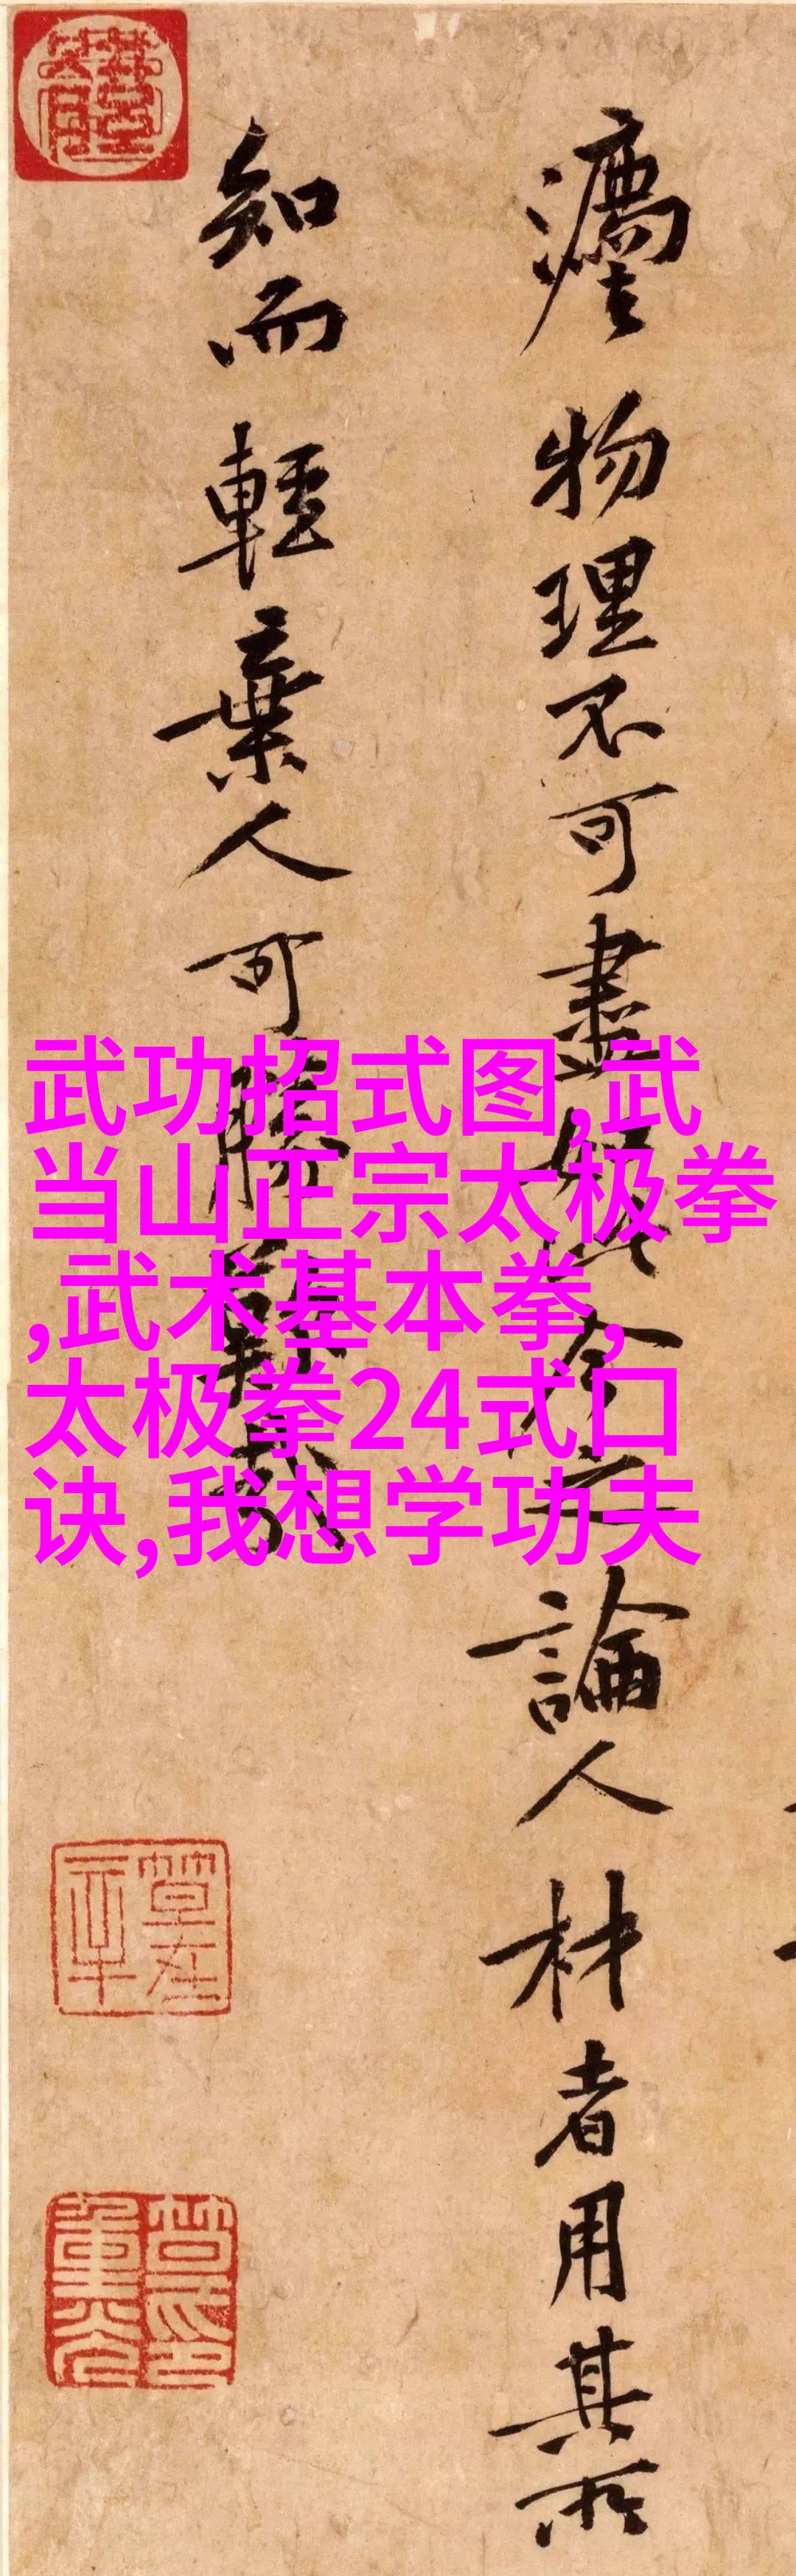 瘧物理不可盡如此今之論人材者用其所
知而輕棄人可勝歎哉
武功招式图,武
当山正宗太极拳
,武术基本拳,
太极拳24式口
诀,我想学功夫